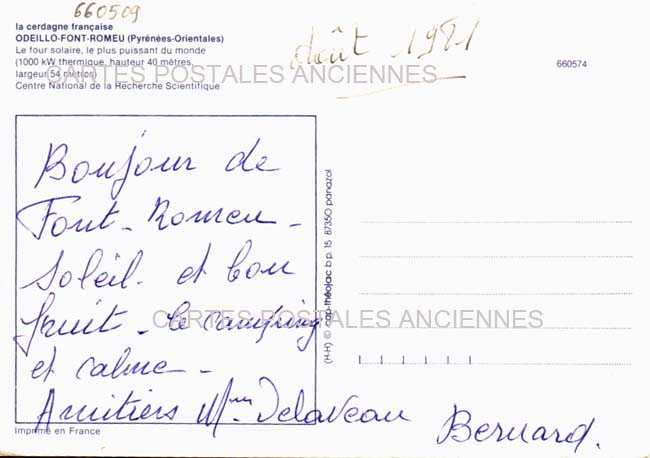 660509
la cerdagne française
ODEILLO-FONT-ROMEU (Pyrénées-Orientales)
Le four solaire, le plus puissant du monde
(1000 kW thermique, hauteur 40 mètres,
largeur 54 mètres)
Centre National de la Recherche Scientifique
août 1981
660574
CARTES POSTALES ANCIENNES
Bonjour de
Font-Romeu-
Soleil. et bon
fruit - le camping
et calme -
Amitiers Mme Delaveau Bernard.
CARTES POSTALES ANCIENNES
(H-H) © cap-théojac b.p. 15 87350 panazol
Imprimé en France